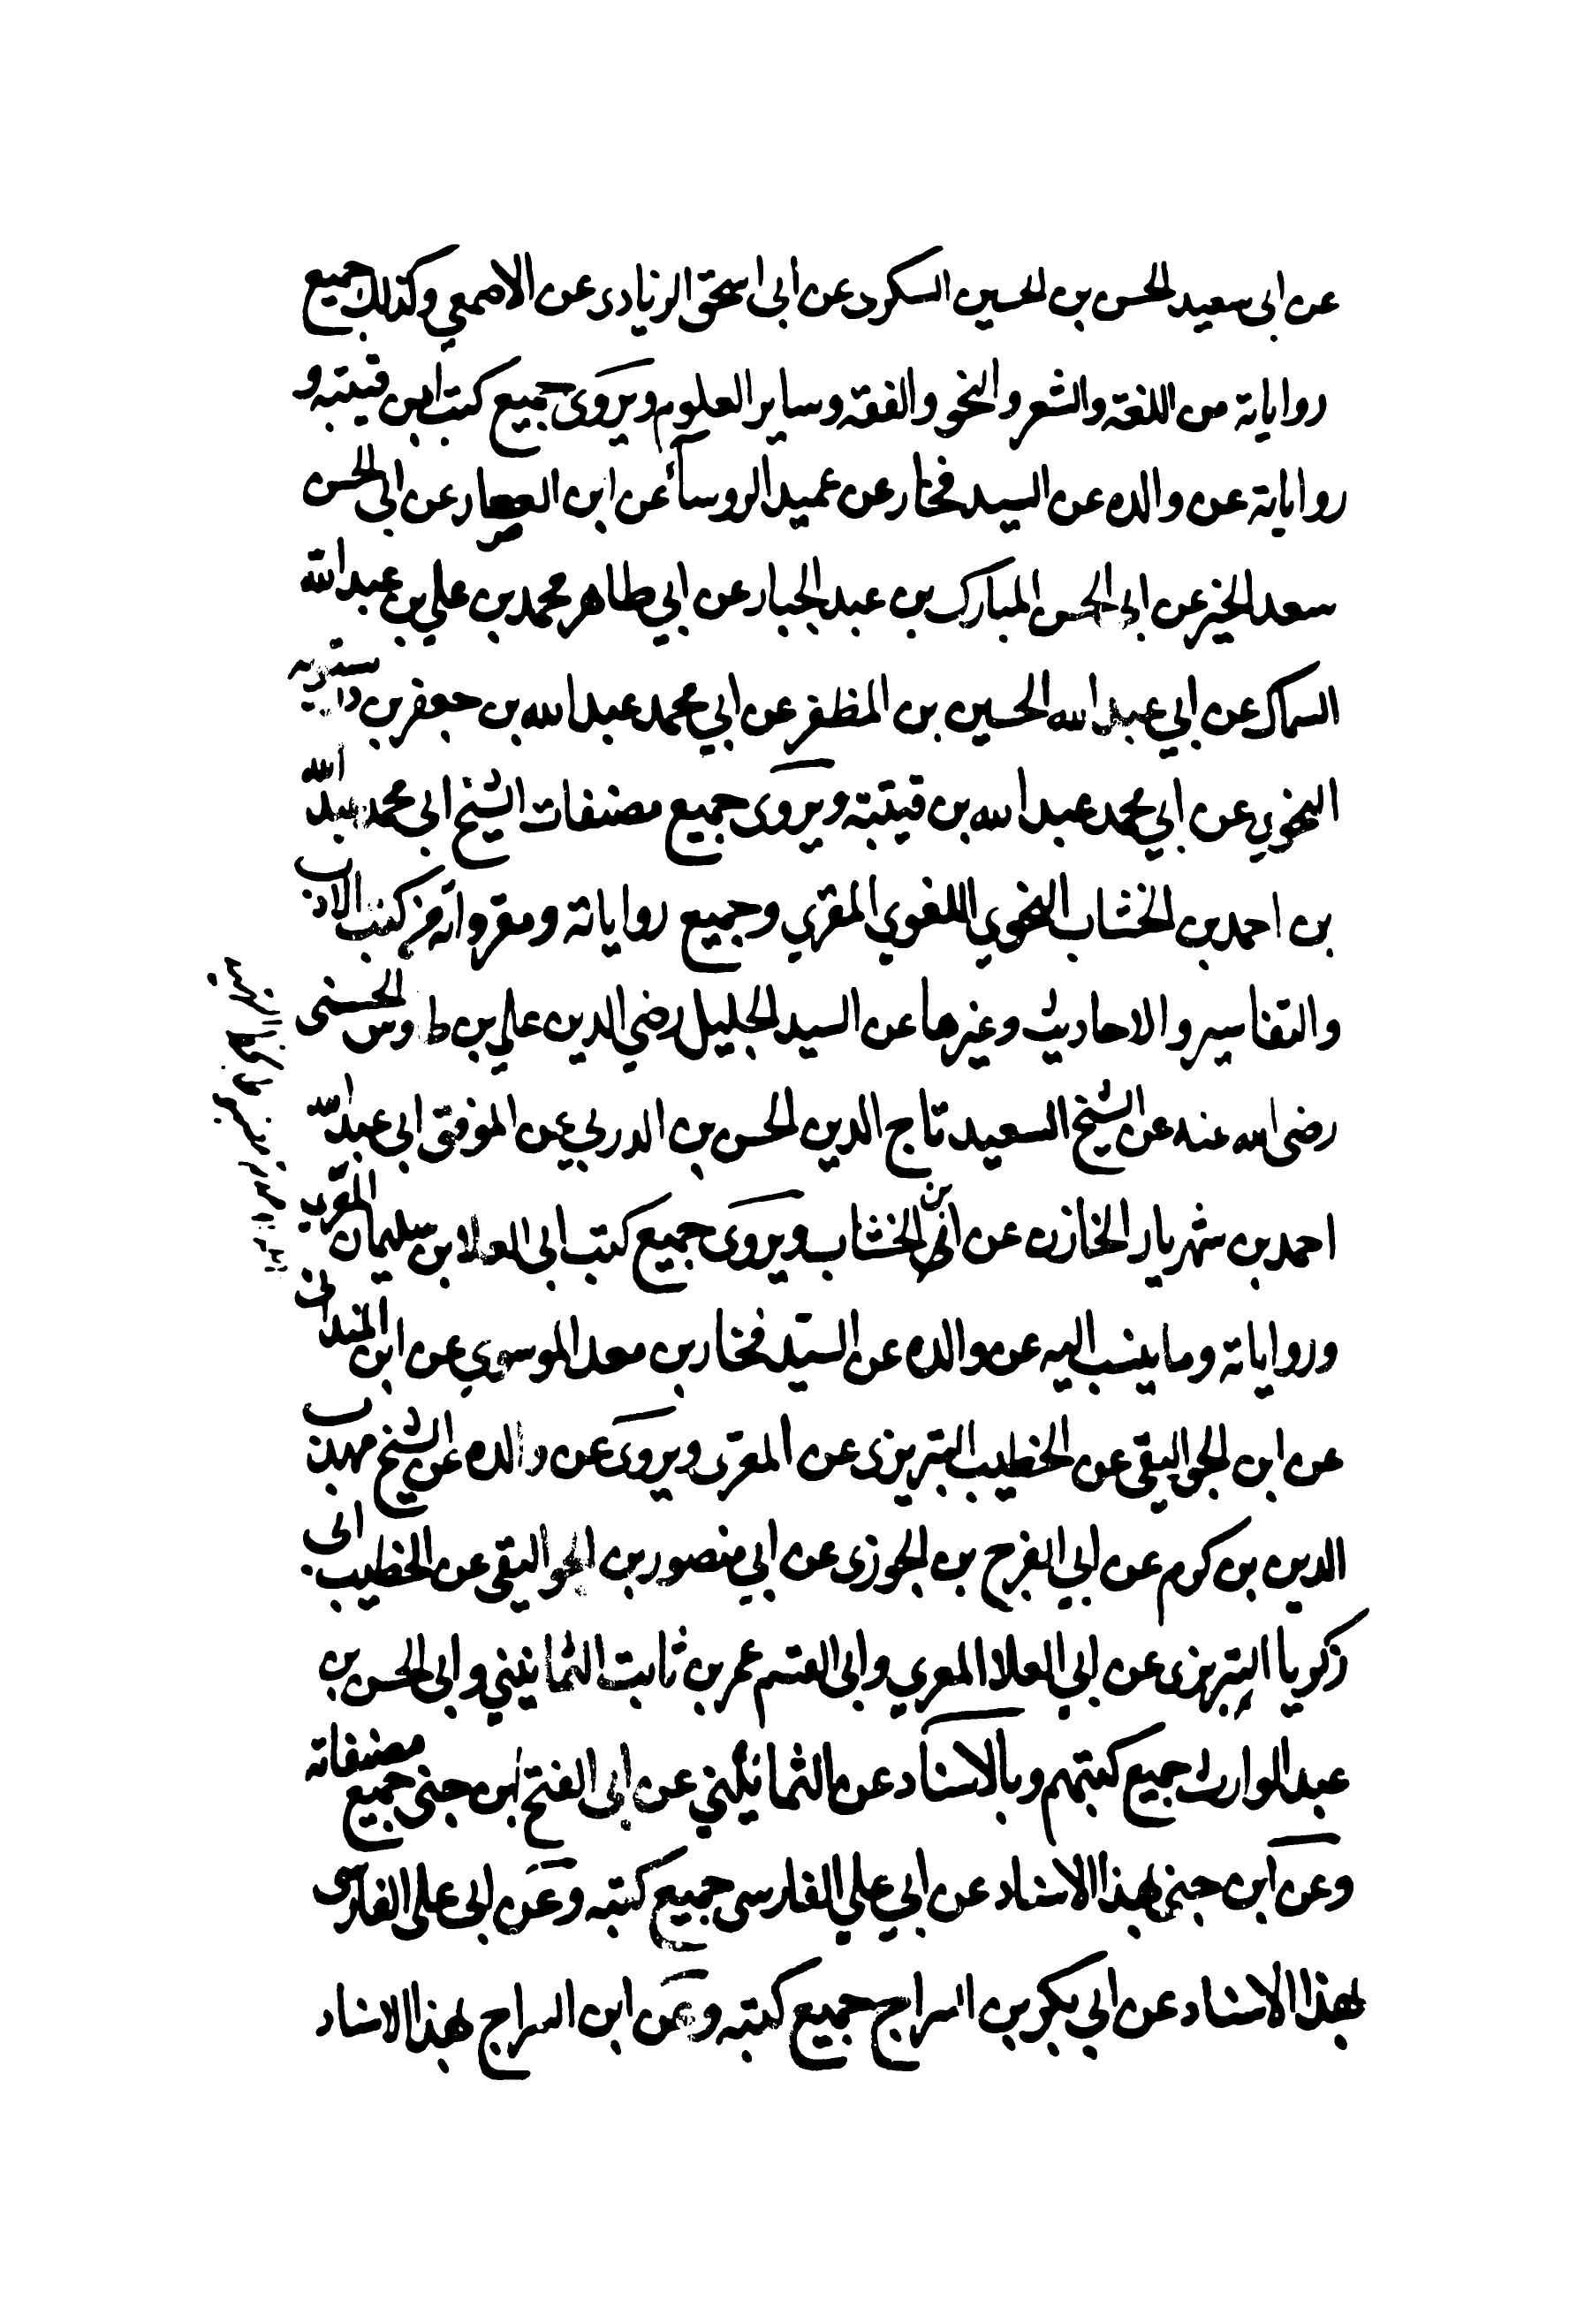 عن ابى سعيد الحسن بن الحسين السكرى عن ابى اسحق الزيادى عن الاصمعي وكذلك جميع
رواياته من اللغة والشعر والنحو والفقه وساير العلوم ويروى جميع كتب ابن قتيبه و
رواياته عن والده عن السيد فخار عن عميد الروسا عن ابن العصار عن ابى الحسن
سعد الخير عن ابى الحسن المبارك بن عبد الجبار عن ابي طاهر محمد بن علي بن عبد الله
السماك عن ابي عبد الله الحسين بن المظفر عن ابي محمد عبد الله بن جعفر بن درستويه
النحوي عن ابي محمد عبد الله بن قتيبة ويروى جميع مصنفات الشيخ ابى محمد عبد الله
بن احمد بن الخشاب النحوي اللغوي المقري وجميع رواياته ومقرواته من كتب الادب
والتفاسير والاحاديث وغيرها عن السيد الجليل رضي الدين علي بن طاوس الحسنى
رضى الله عنه عن الشيخ السعيد تاج الدين الحسن بن الدربي عن الموفق ابى عبد الله
احمد بن شهريار الخازن عن ابن الخشاب ويروى جميع كتب ابى العلا بن سليمان المعري
ورواياته وما ينسب اليه عن والده عن السيد فخار بن معد الموسوي عن ابن المندائى
عن ابن الجواليقى عن الخطيب التبريزى عن المعرى ويروى عن والده عن الشيخ مهذب
الدين بن كرم عن ابي الفرج بن الجوزى عن ابي منصور بن الجواليقى عن الخطيب ابى
زكريا التبريزى عن ابي العلا المعري وابى القسم عمر بن ثابت الثمانيني وابى الحسن بن
عبد الوارث جميع كتبهم وبالاسناد عن الثمانيني عن ابى الفتح ابن جنى جميع مصنفاته
وعن ابن جنى بهذا الاسناد عن ابي علي الفارسى جميع كتبه وعن ابى على الفارسى
بهذا الاسناد عن ابي بكر بن السراج جميع كتبه وعن ابن السراج بهذا الاسناد